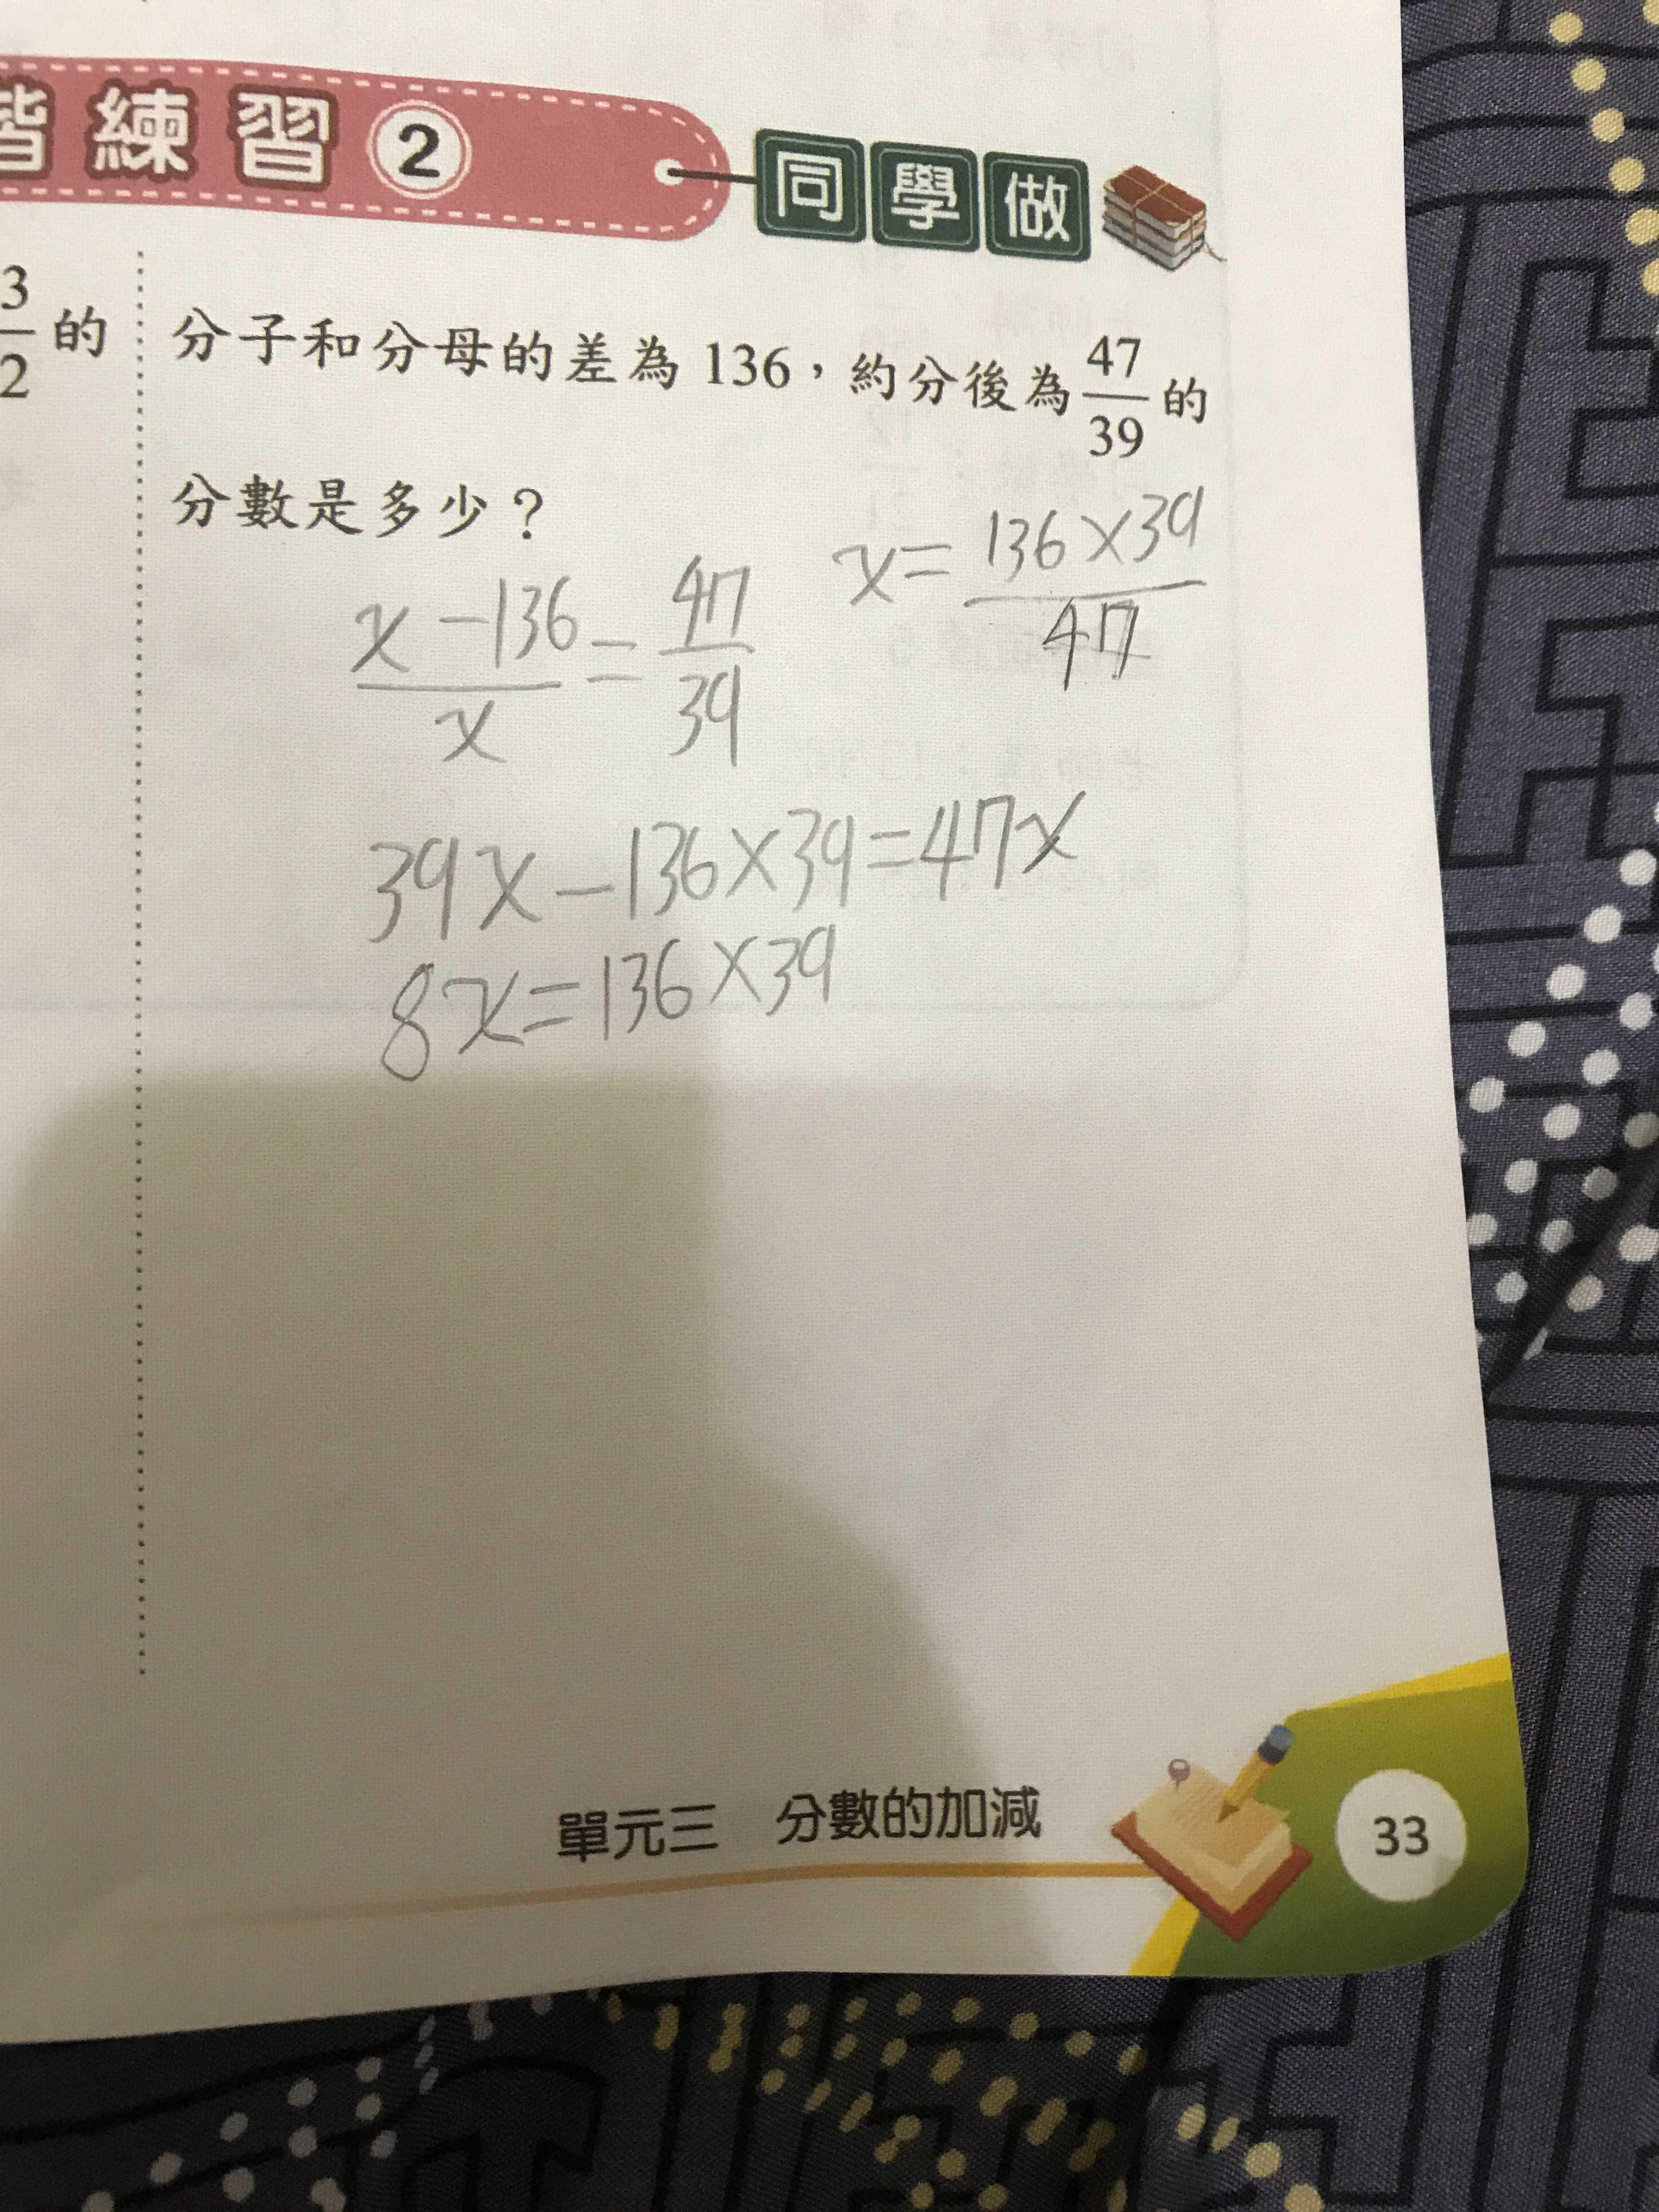 練習2 同學做
3/2 的
分子和分母的差為136，約分後為 47/39 的
分數是多少？
x = 136×39/47
x-136/x = 47/39
39x-136×39=47x
8x=136×39
單元三 分數的加減
33